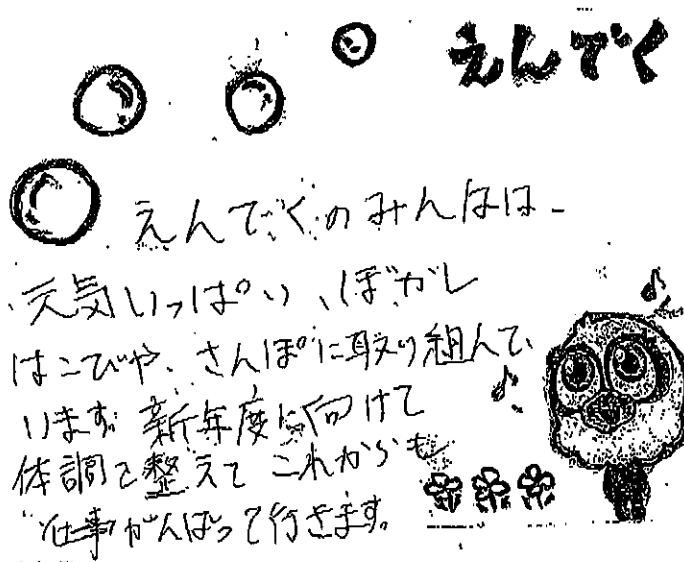 えんでく
えんでくのみんなは、
元気いっぱい、ぼかし
はこびや、さんぽに取り組んで
います。新年度に向けて
体調を整えて これからも
仕事がんばって行きます。